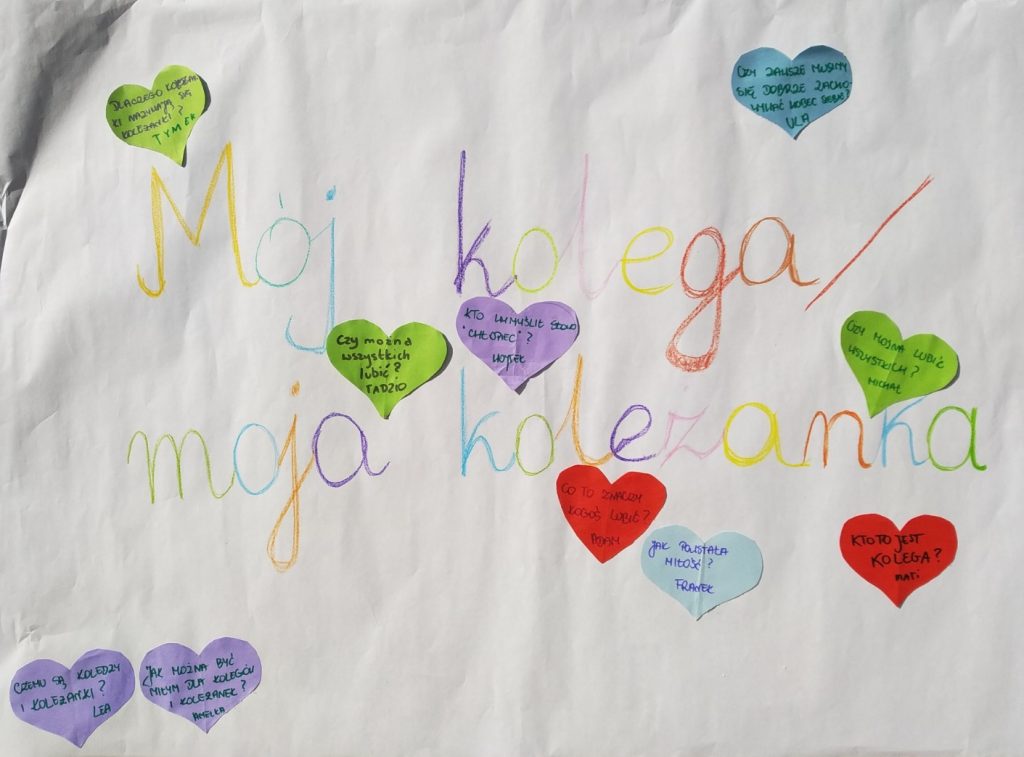 DLACZEGO KOLEŻAN
KI NAZYWAJĄ SIĘ
KOLEŻANKI?
TYMEK
CZY ZAWSZE MUSIMY
SIĘ DOBRZE ZACHO
WYWAĆ WOBEC SIEBIE?
ULA
Mój kolega/
KTO WYMYŚLIŁ SŁOWO
"CHŁOPIEC"?
WOJTEK
Czy można
wszystkich
lubić?
TADZIO
CZY MOŻNA LUBIĆ
WSZYSTKICH?
MICHAŁ
moja koleżanka
CO TO ZNACZY
KOGOŚ LUBIĆ?
ADAM
JAK POWSTAŁA
MIŁOŚĆ?
FRANEK
KTO TO JEST
KOLEGA?
MATI
CZEMU SĄ KOLEDZY
I KOLEŻANKI?
LEA
JAK MOŻNA BYĆ
MIŁYM DLA KOLEGÓW
I KOLEŻANEK?
AMELKA